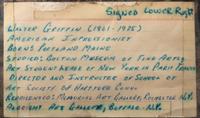 Signed Lower Right
Walter Griffin (1861-1935)
American Impressionist
Born: Portland Maine
Studied: Boston Museum of Fine Arts
Art Student League of New York in Paris
Director and Instructor of School of
Art Society of Hartford Conn.
Represented: Memorial Art Gallery, Rochester N.Y.
Albright Art Gallery, Buffalo N.Y.